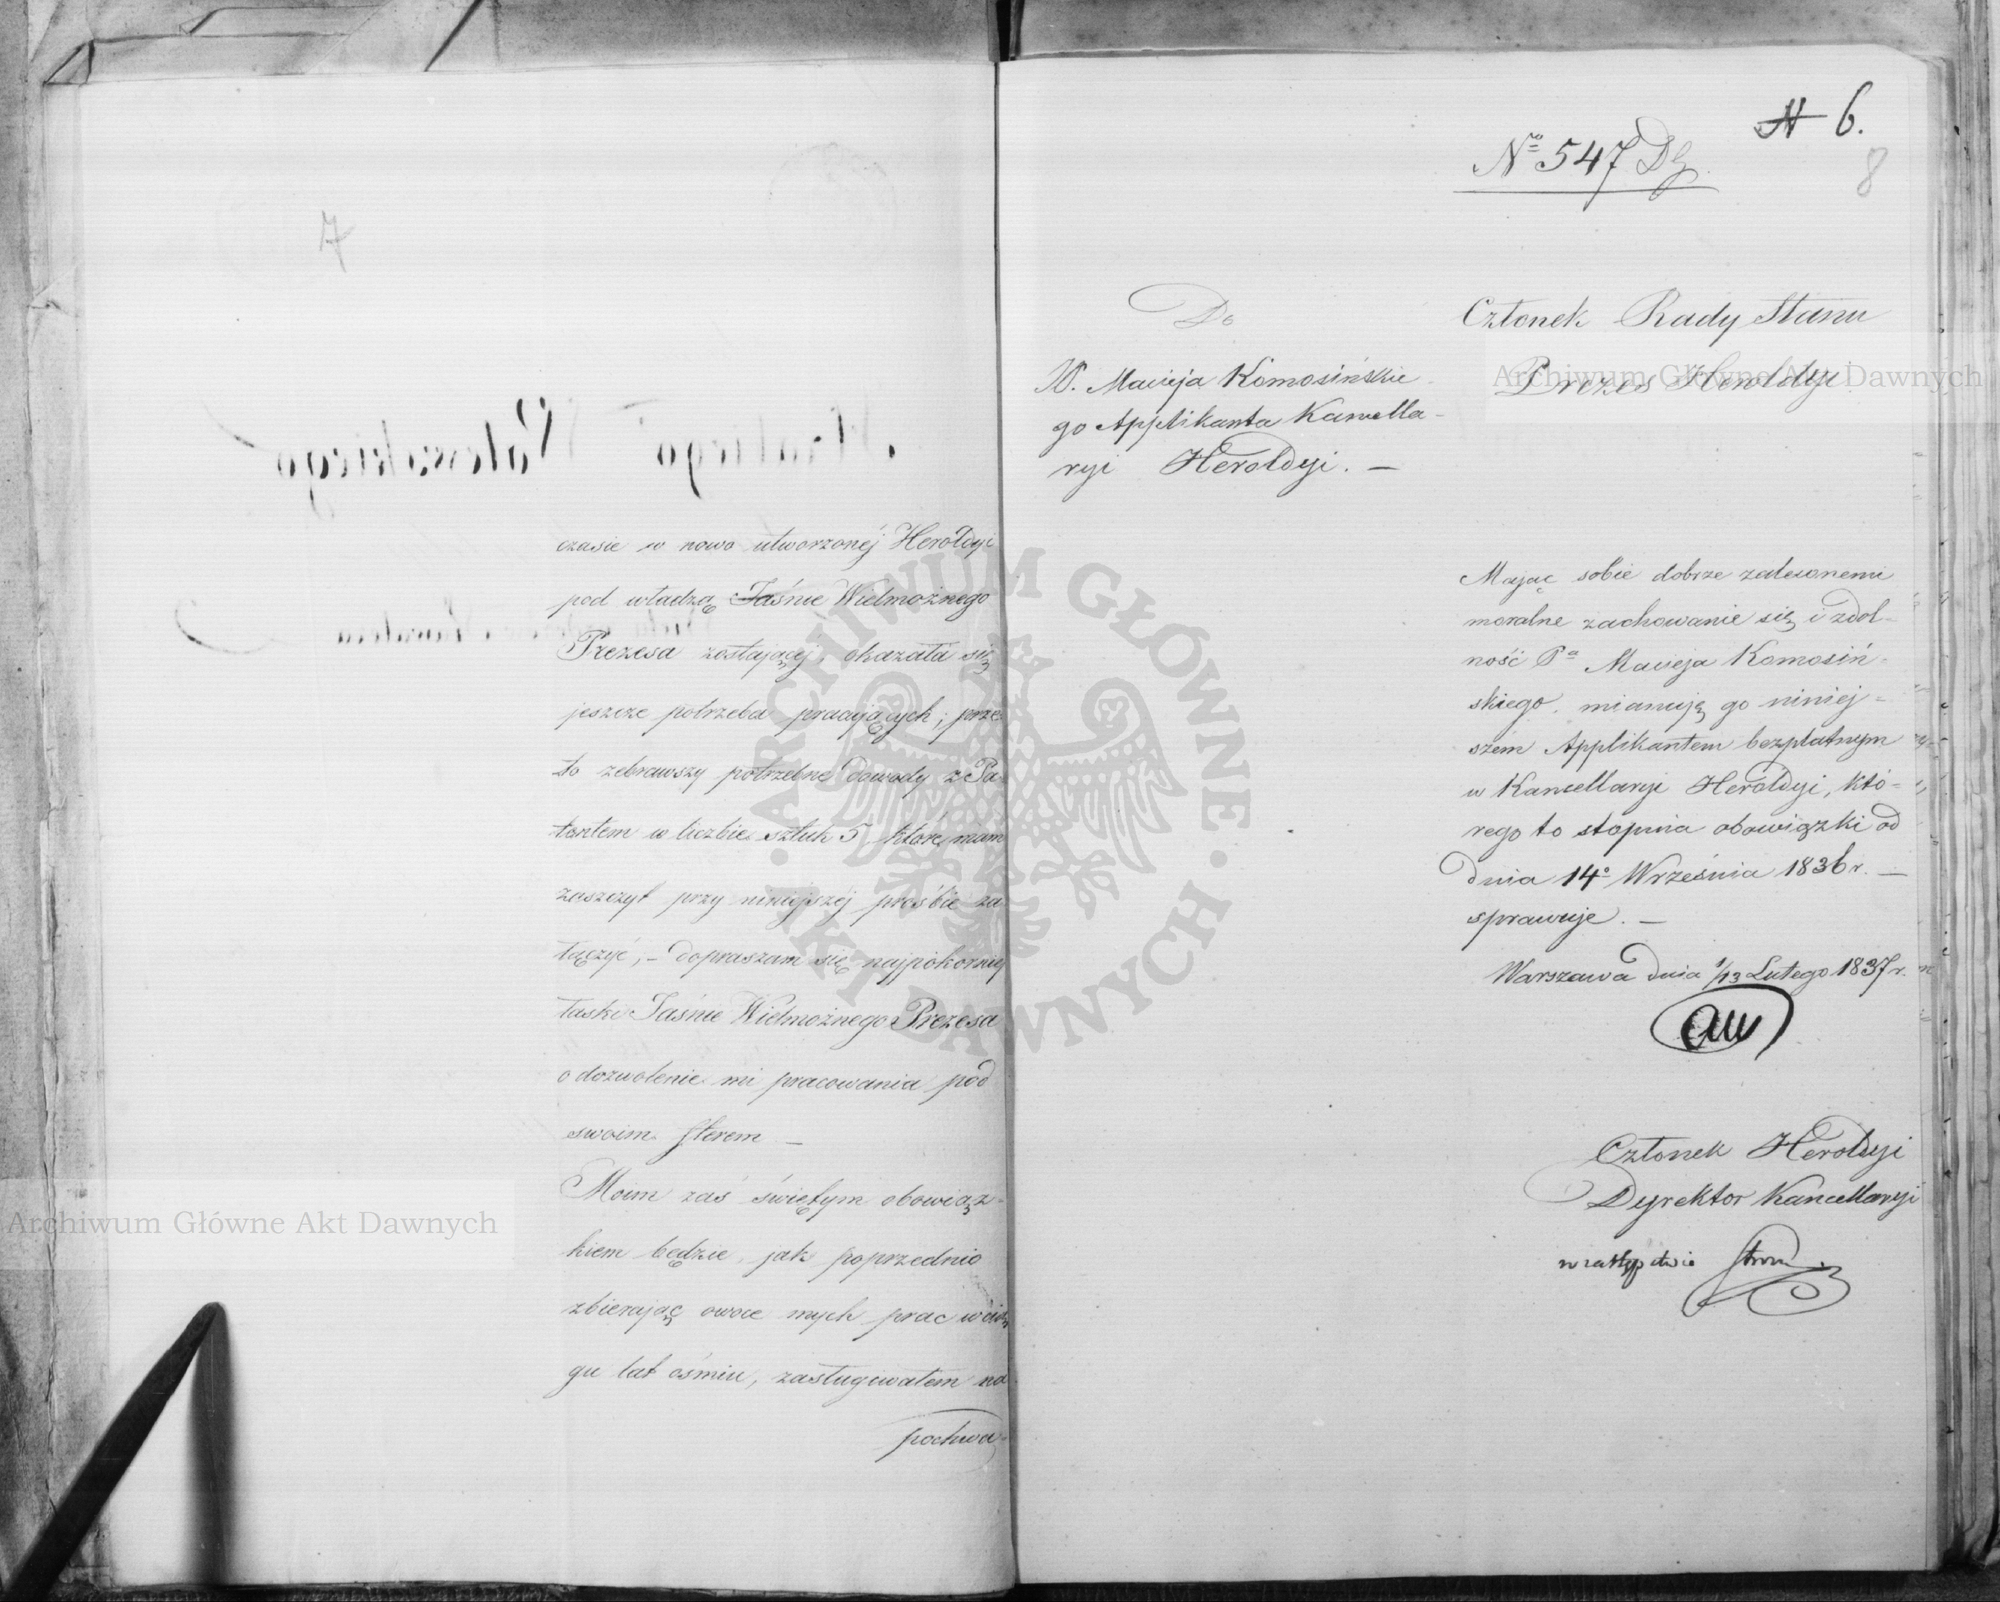 7
czasie w nowo utworzonéj Heroldyi
pod władzą Jaśnie Wielmożnego
Prezesa zostającéj, okazała się
jeszcze potrzeba pracujących; prze-
to zebrawszy potrzebne dowody z Pa-
tentem w liczbie sztuk 5, które mam
zaszczyt przy niniejszéj prośbie za-
łączyć, – dopraszam się najpokorniej
łaski Jaśnie Wielmożnego Prezesa
o dozwolenie mi pracowania pod
swoim sterem —
Moim zaś świętym obowiąz-
kiem będzie, jak poprzednio
zbierając owoce mych prac w cią-
gu lat ośmiu, zasługiwałem na
pochwa-
N 6.
8
No 547 Dz.
Członek Rady Stanu
Prezes Heroldyi
Do
W. Macieja Komosińskie-
go Applikanta Kancella-
ryi Heroldyi. —
Mając sobie dobrze zalecone
moralne zachowanie się i zdol-
ność Pa Macieja Komosiń-
skiego, mianuję go niniej-
szém Applikantem bezpłatnym
w Kancellaryi Heroldyi, któ-
rego to stopnia obowiązki od
dnia 14o Września 1836 r. —
sprawuje. —
Warszawa dnia 1/13 Lutego 1837 r.
Członek Heroldyi
Dyrektor Kancellaryi
w zastępstwie
Archiwum Główne Akt Dawnych
Archiwum Główne Akt Dawnych
· ARCHIWUM GŁÓWNE · AKT DAWNYCH